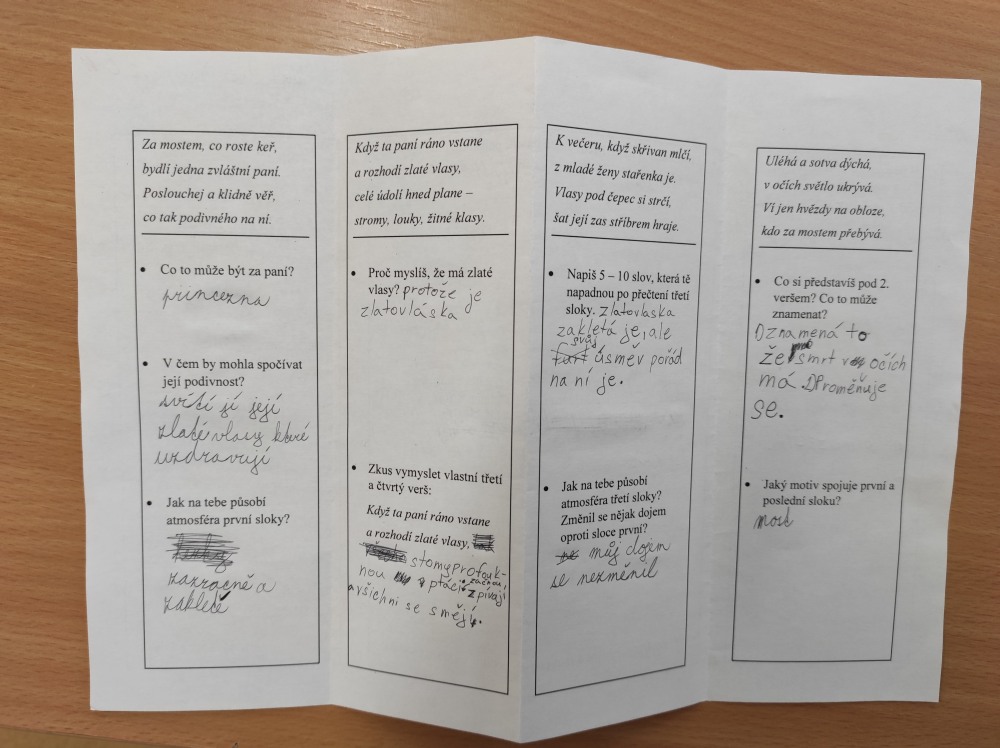 Za mostem, co roste keř,
bydlí jedna zvláštní paní.
Poslouchej a klidně věř,
co tak podivného na ní.
• Co to může být za paní?
princezna
• V čem by mohla spočívat
její podivnost?
svítí jí její
zlaté vlasy které
uzdravují
• Jak na tebe působí
atmosféra první sloky?
zazračně a
zakletě
Když ta paní ráno vstane
a rozhodí zlaté vlasy,
celé údolí hned plane –
stromy, louky, žitné klasy.
• Proč myslíš, že má zlaté
vlasy? protože je
zlatovláska
• Zkus vymyslet vlastní třetí
a čtvrtý verš:
Když ta paní ráno vstane
a rozhodí zlaté vlasy,
stomy profouk-
nou ptáci začnou
zpívají
a všichni se smějí.
K večeru, když skřivan mlčí,
z mladé ženy stařenka je.
Vlasy pod čepec si strčí,
šat její zas stříbrem hraje.
• Napiš 5 – 10 slov, která tě
napadnou po přečtení třetí
sloky. zlatovlaska
zakletá je, ale
svůj
furt úsměv pořád
na ní je.
• Jak na tebe působí
atmosféra třetí sloky?
Změnil se nějak dojem
oproti sloce první?
můj dojem
se nezměnil
Uléhá a sotva dýchá,
v očích světlo ukrývá.
Ví jen hvězdy na obloze,
kdo za mostem přebývá.
• Co si představíš pod 2.
veršem? Co to může
znamenat?
znamená to
že smrt v očích
má. Proměňuje
se.
• Jaký motiv spojuje první a
poslední sloku?
most